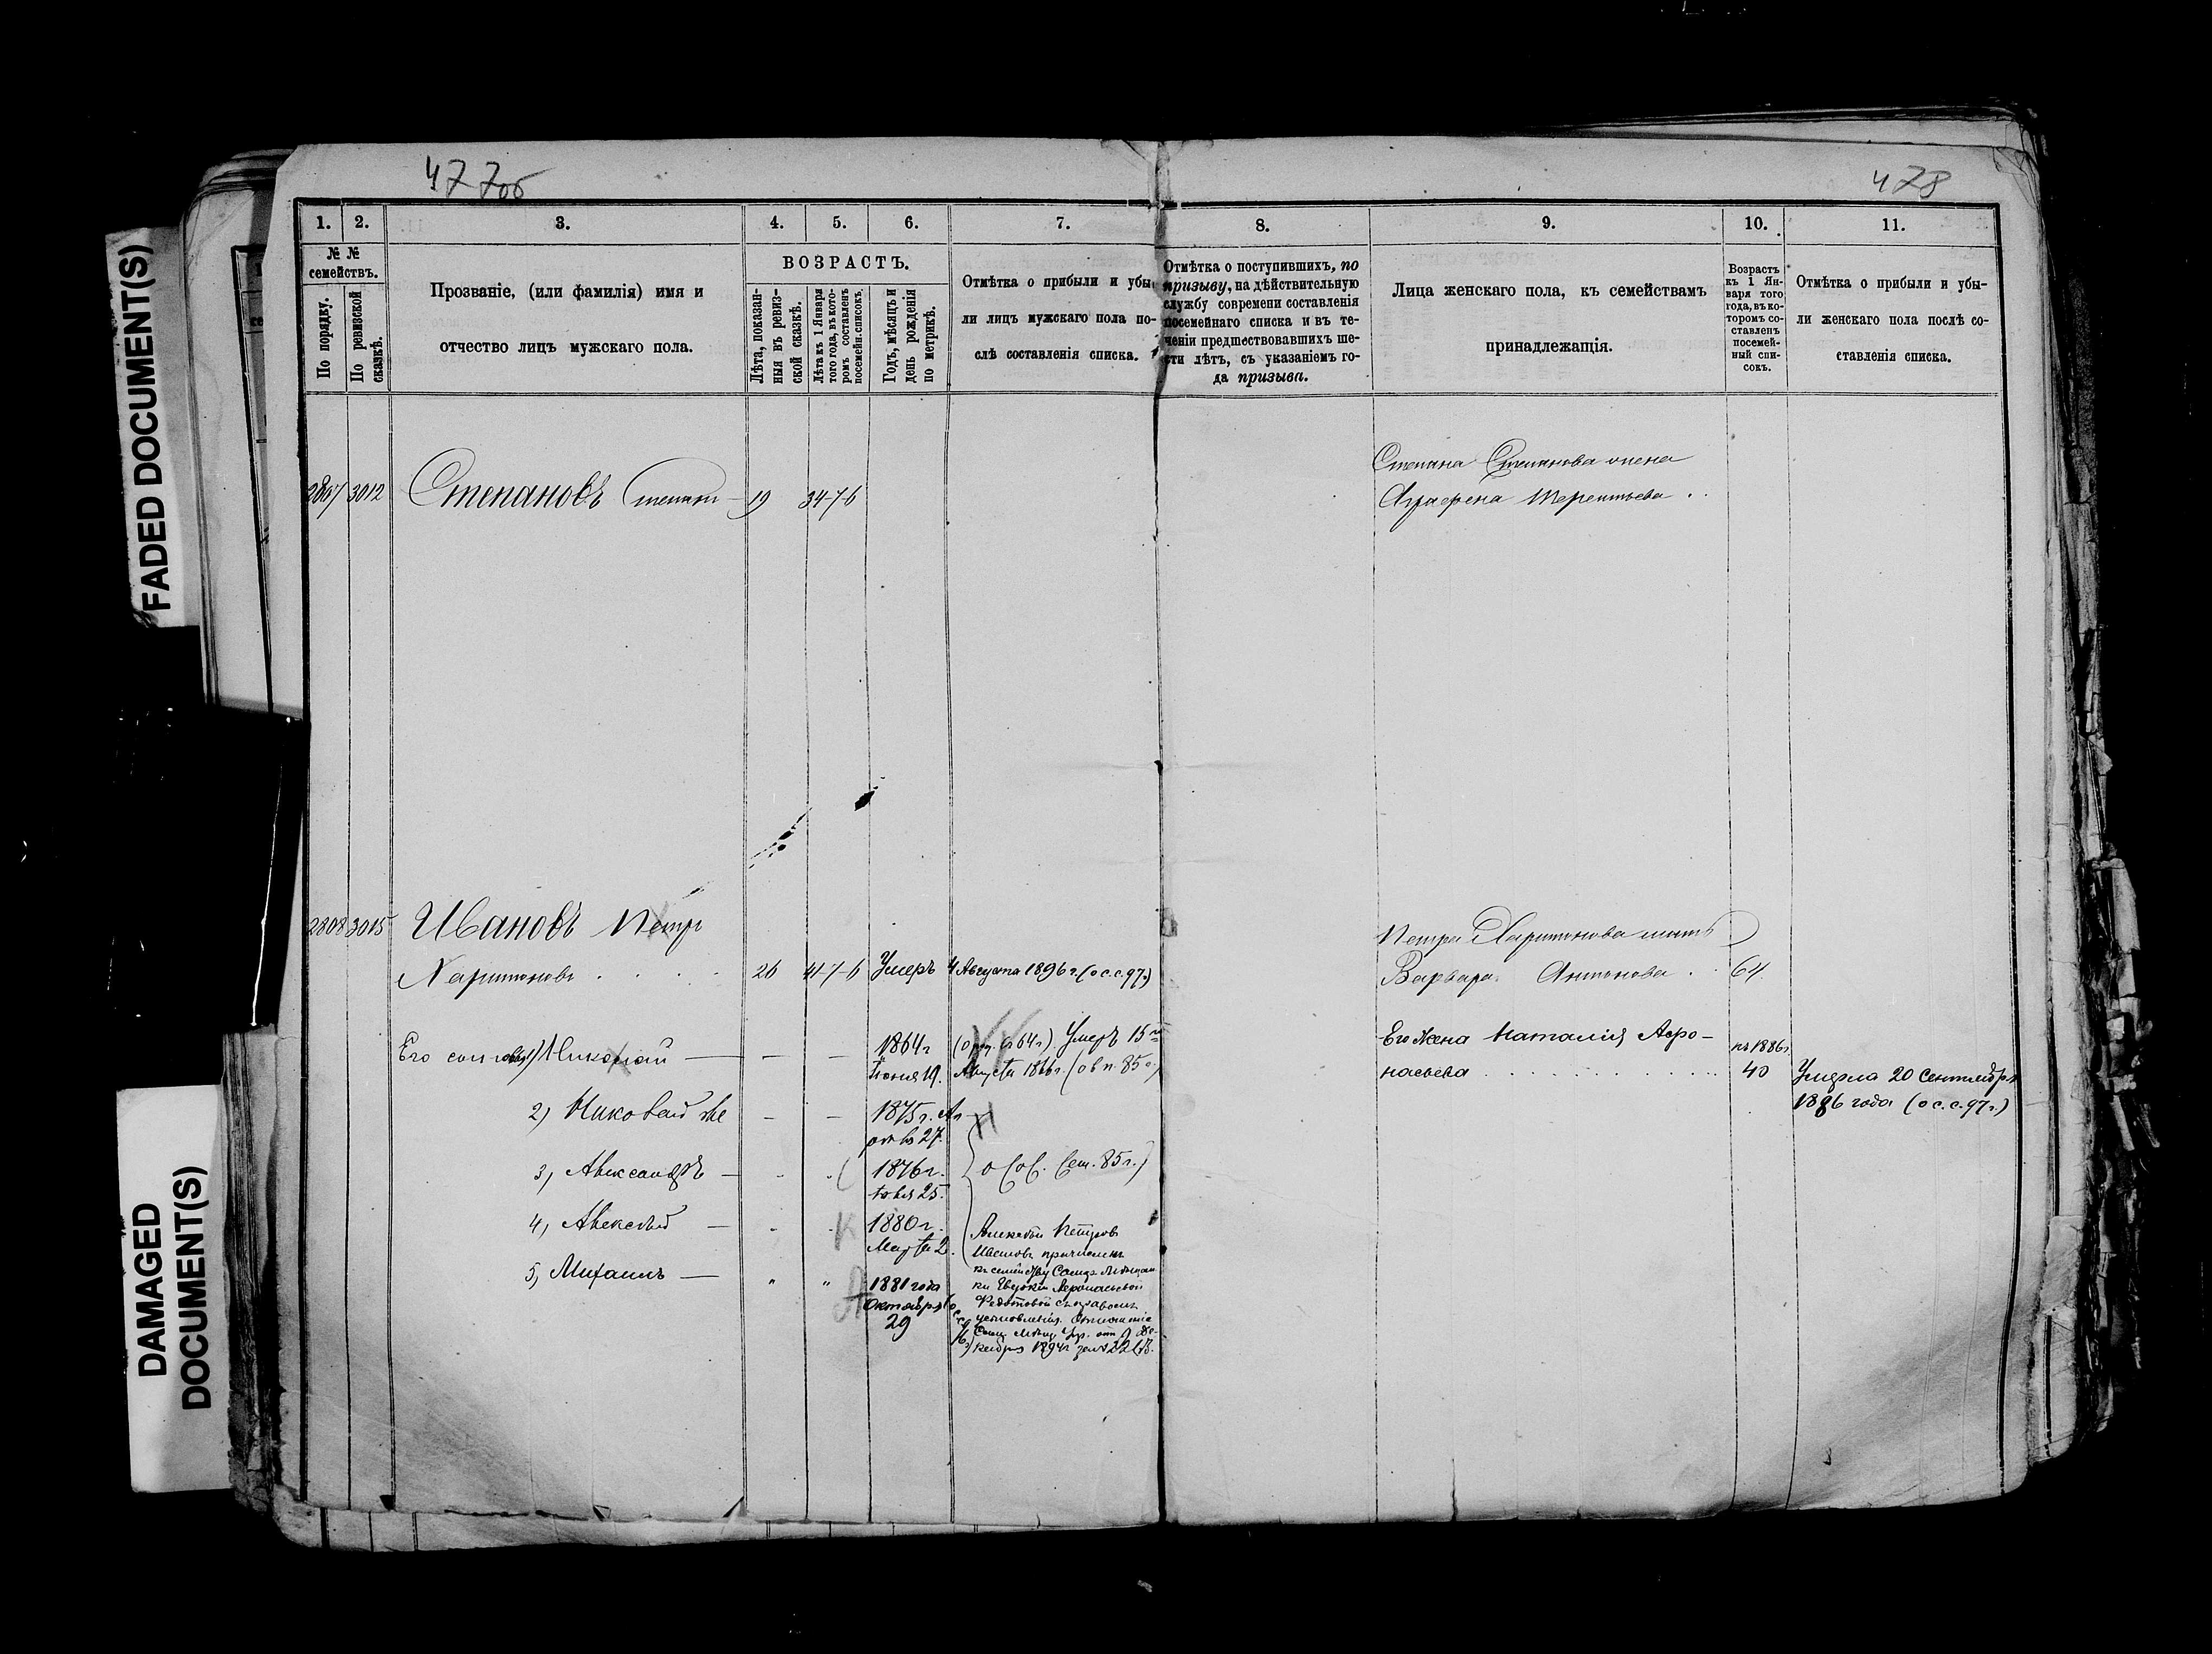 477об
478
FADED DOCUMENT(S)
DAMAGED
DOCUMENT(S)
1.
2.
3.
4.
5.
6.
7.
8.
9.
10.
11.
№ №
семействъ.
По порядку.
По ревизской
сказкѣ.
Прозваніе, (или фамилія) имя и
отчество лицъ мужскаго пола.
ВОЗРАСТЪ.
Лѣта, показан-
ныя въ ревиз-
ской сказкѣ.
Лѣта къ 1 Января
того года, въ кото-
ромъ составленъ
посемейн. списокъ.
Годъ, мѣсяцъ и
день рожденія
по метрикѣ.
Отмѣтка о прибыли и убы-
ли лицъ мужскаго пола по-
слѣ составленія списка.
Отмѣтка о поступившихъ, по
призыву, на дѣйствительную
службу современи составленія
посемейнаго списка и въ те-
ченіи предшествовавшихъ ше-
сти лѣтъ, съ указаніемъ го-
да призыва.
Лица женскаго пола, къ семействамъ
принадлежащія.
Возрастъ
къ 1 Ян-
варя того
года, въ ко-
торомъ со-
ставленъ
посемей-
ный спи-
сокъ.
Отмѣтка о прибыли и убы-
ли женскаго пола послѣ со-
ставленія списка.
3012 Степановъ Степанъ 19 34-7-6
Степана Степанова жена
Аграфена Терентьева
2808 3015 Ивановъ Петръ
Харитоновъ 26 41-7-6 Умеръ 4 Августа 1896 г. (о с. с. 97 г.)
Петра Харитонова мать
Варвара Антонова 64
Его сыновья 1) Николай — — — 1864 г.
Іюня 19. Умеръ 15
Августа 1866 г.
Его жена Наталія Афо-
насьева
къ 1886 г.
40
Умерла 20 Сентября
1886 года (о с. с. 97 г.)
2) Николай же — — 1875 г. Ап-
рѣля 27.
3) Александръ — 1876 г.
25.
Сем. 85 г.)
4) Алексѣй — 1880 г.
Марта 2.
5) Михаилъ — " " 1881 года
Октября
29
Алексѣй Петровъ
Ивановъ причисленъ
къ семейству
1894 г.